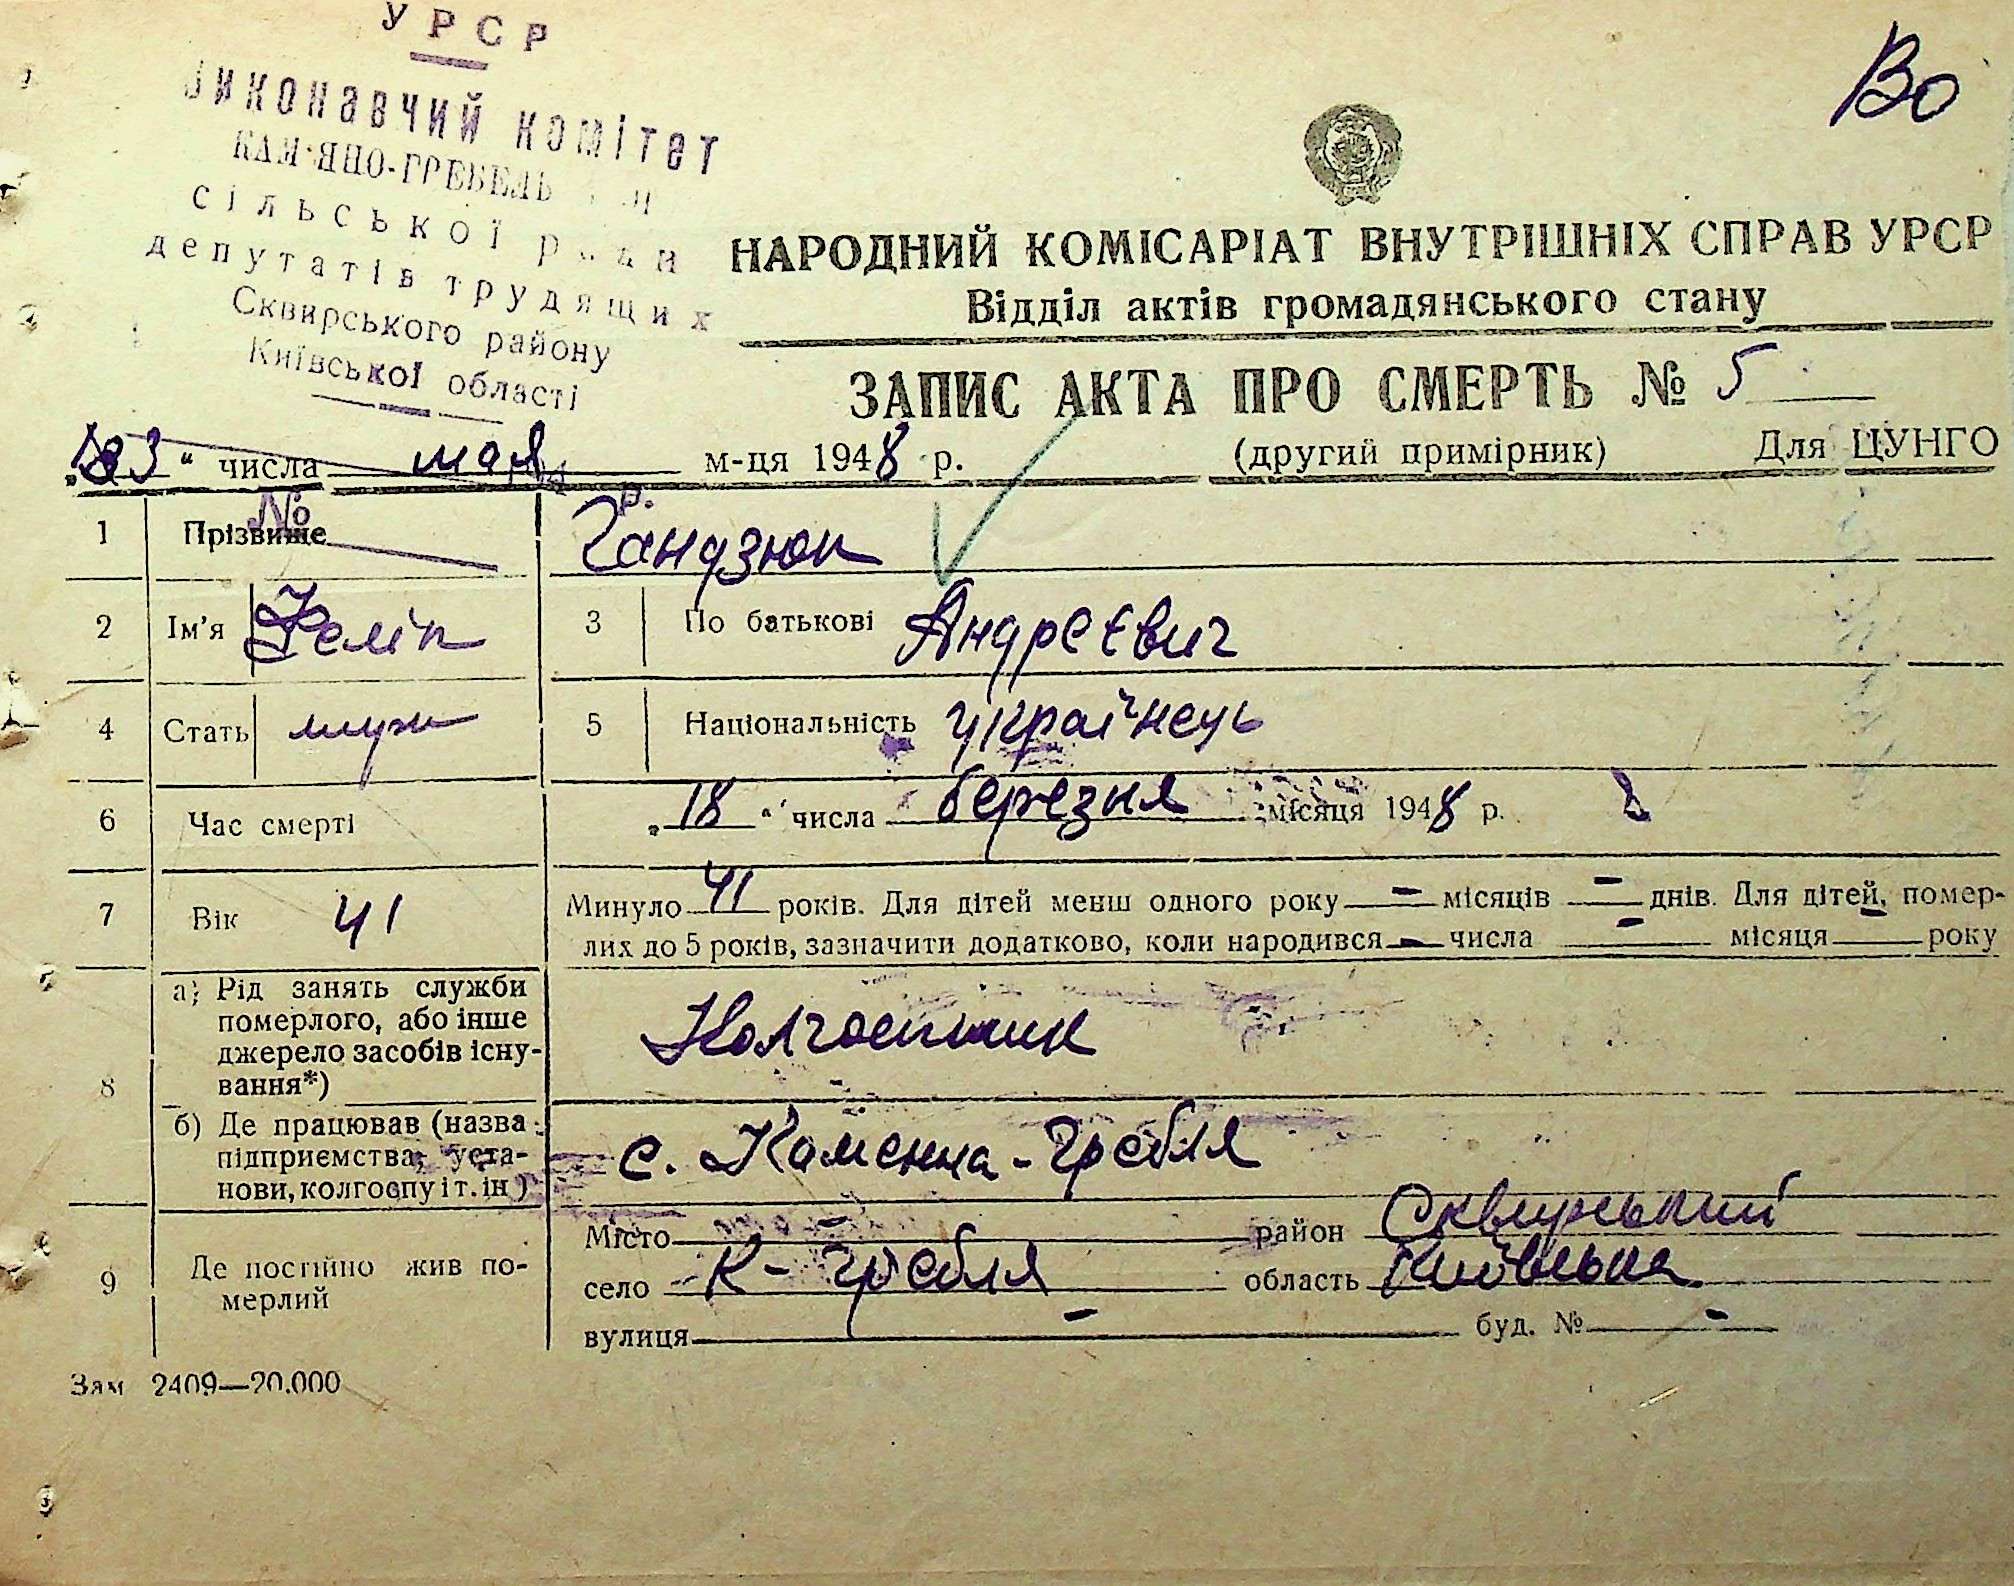 УРСР
Виконавчий комітет
КАМ'ЯНО-ГРЕБЕЛЬ
сільської ради
депутатів трудящих
Сквирського району
Київської області
№
Во
НАРОДНИЙ КОМІСАРІАТ ВНУТРІШНІХ СПРАВ УРСР
Відділ актів громадянського стану
ЗАПИС АКТА ПРО СМЕРТЬ № 5
„23“ числа мая м-ця 1948 р. (другий примірник) Для ЦУНГО
1 Прізвище Гандзюк
2 Ім'я Феліп 3 По батькові Андрєєвич
4 Стать муж 5 Національність українець
6 Час смерті „18“ числа березня місяця 1948 р.
7 Вік 41 Минуло 41 років. Для дітей менш одного року — місяців — днів. Для дітей, помер-
лих до 5 років, зазначити додатково, коли народився — числа — місяця — року
8 а) Рід занять служби
померлого, або інше
джерело засобів існу-
вання*)
Колгоспник
б) Де працював (назва
підприємства, уста-
нови, колгоспу і т. ін)
с. Каменна-гребля
9 Де постійно жив по-
мерлий
Місто — район Сквирський
село К-гребля область Київська
вулиця — буд. № —
Зам 2409—20.000